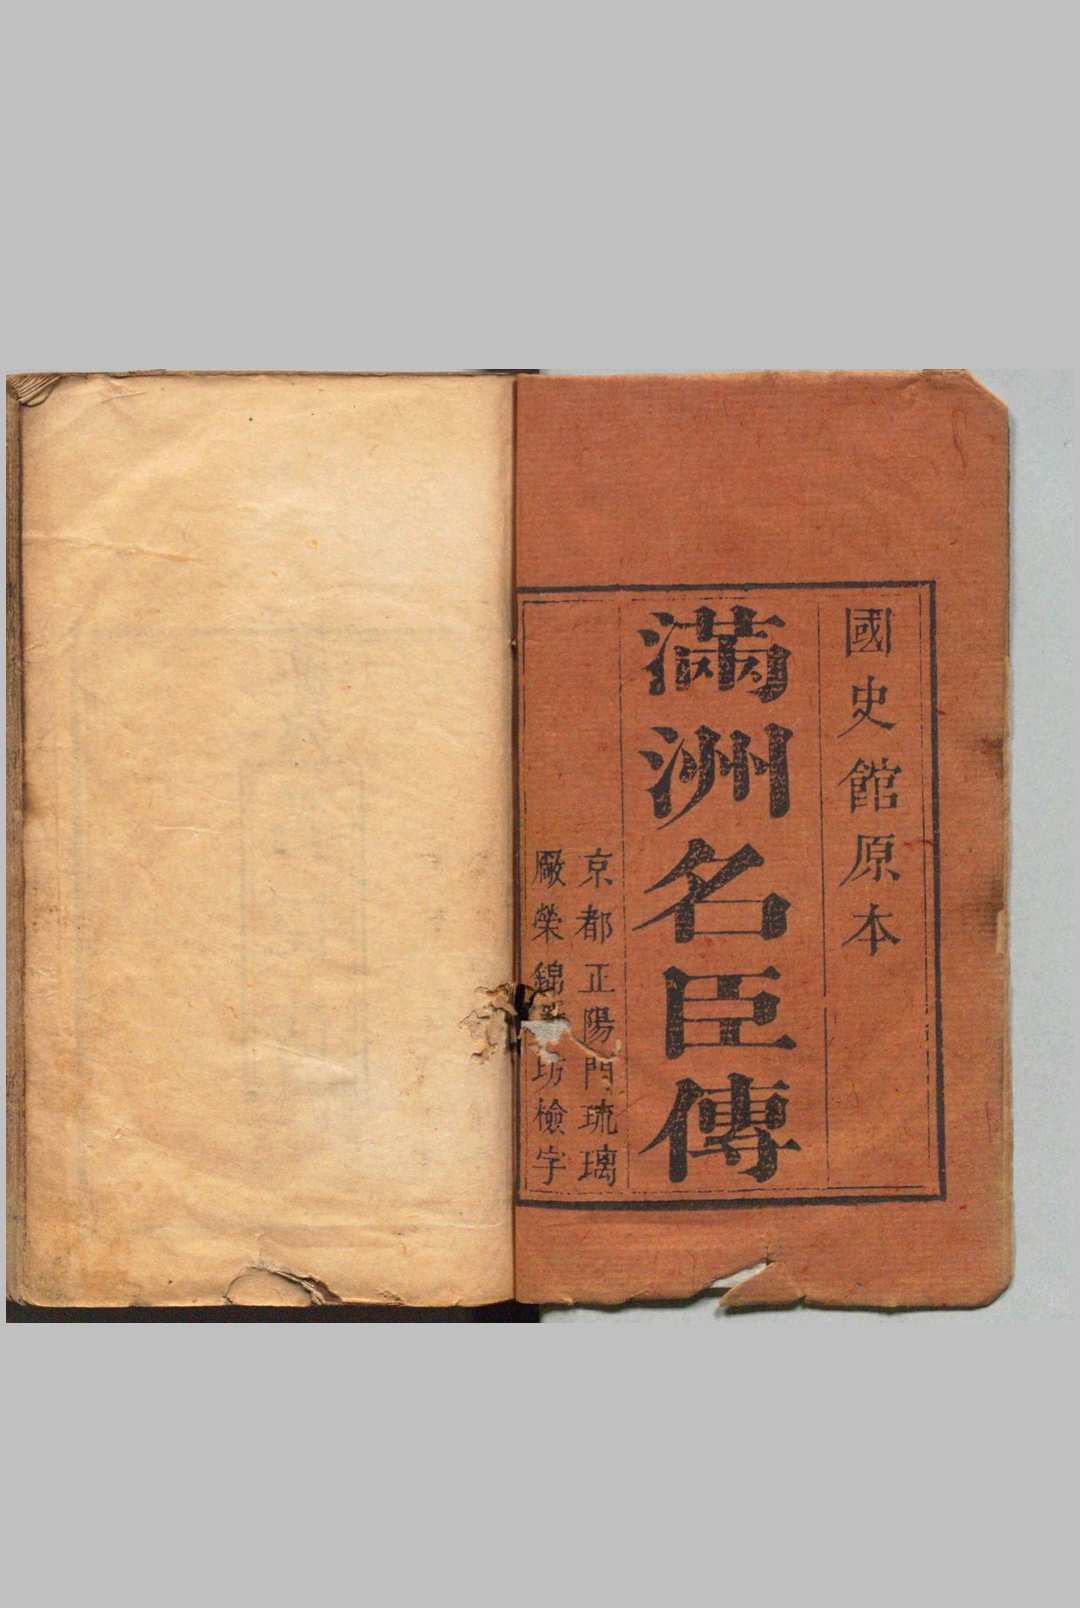 國史館原本
滿洲名臣傳
京都正陽門琉璃
厰榮錦坊檢字